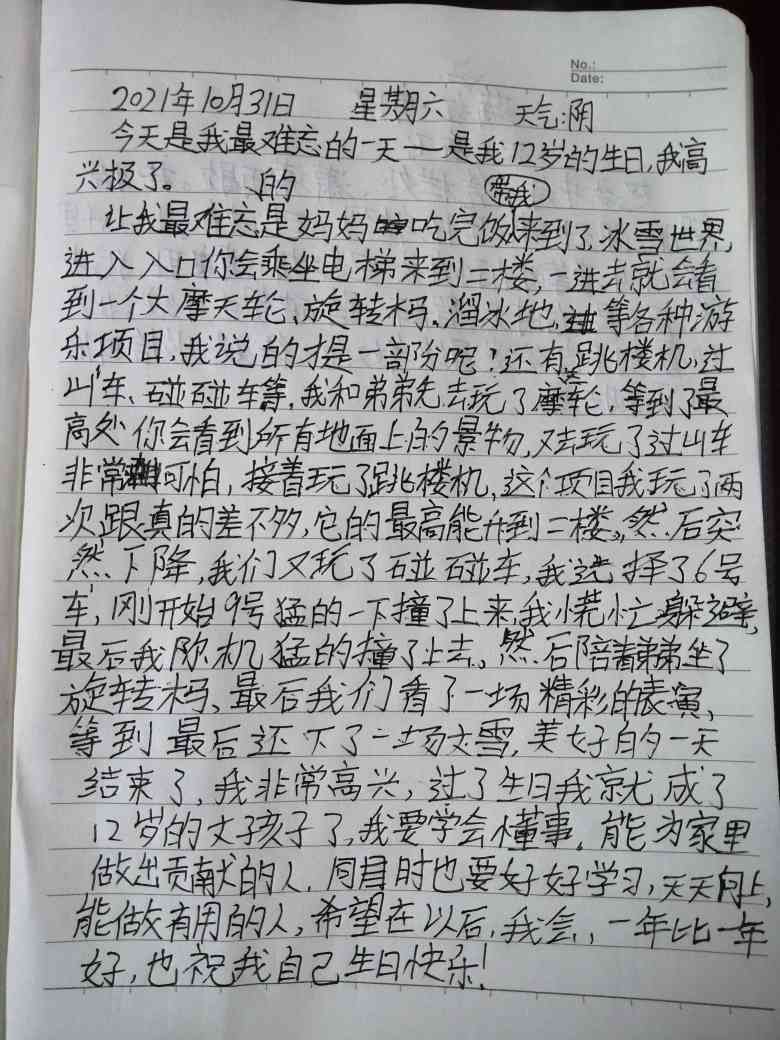 No.:
Date:
2021年10月31日 星期六 天气:阴
今天是我最难忘的一天——是我12岁的生日,我高
兴极了。
让我最难忘的是妈妈吃完饭带我来到了冰雪世界,
进入入口你会乘坐电梯来到二楼,一进去就会看
到一个大摩天轮、旋转木马、溜冰地、等各种游
乐项目,我说的才是一部份呢!还有跳楼机,过
山车、碰碰车等,我和弟弟先去玩了摩天轮,等到了最
高处你会看到所有地面上的景物,又去玩了过山车
非常可怕,接着玩了跳楼机,这个项目我玩了两
次跟真的差不多,它的最高能升到二楼,然后突
然下降,我们又玩了碰碰车,我选择了6号
车,刚开始9号猛的一下撞了上来,我慌忙躲避,
最后我随机猛的撞了上去。然后陪着弟弟坐了
旋转木马、最后我们看了一场精彩的表演,
等到最后还下了一场大雪,美好的一天
结束了,我非常高兴,过了生日我就成了
12岁的大孩子了,我要学会懂事,能为家里
做出贡献的人,同时也要好好学习,天天向上,
能做有用的人,希望在以后,我会,一年比一年
好,也祝我自己生日快乐!